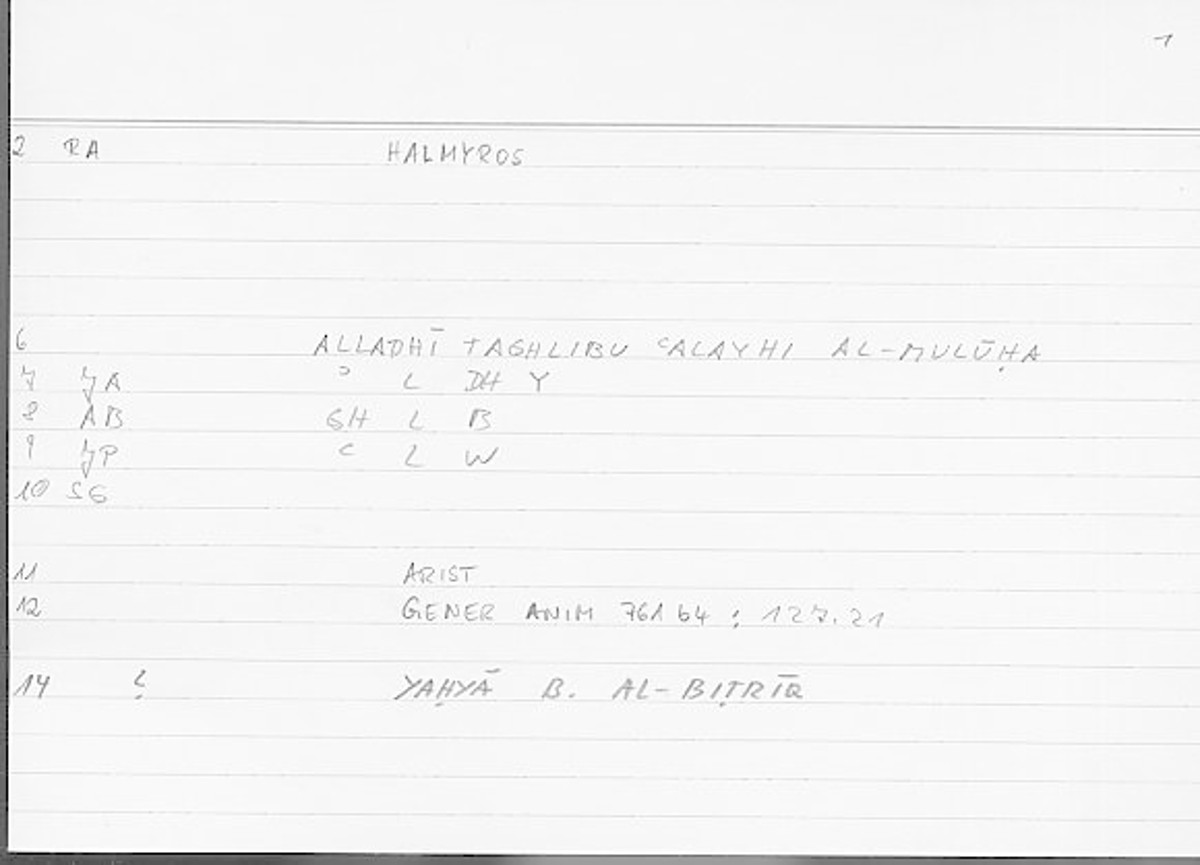 1
2 RA HALMYROS
6 ALLADHĪ TAGHLIBU ʿALAYHI AL-MULŪḤA
7 JA ʾ L DH Y
8 AB GH L B
9 JP ʿ L W
10 SG
11 ARIST
12 GENER ANIM 761 b4 ; 127.21
14 YAḤYĀ B. AL-BIṬRĪQ